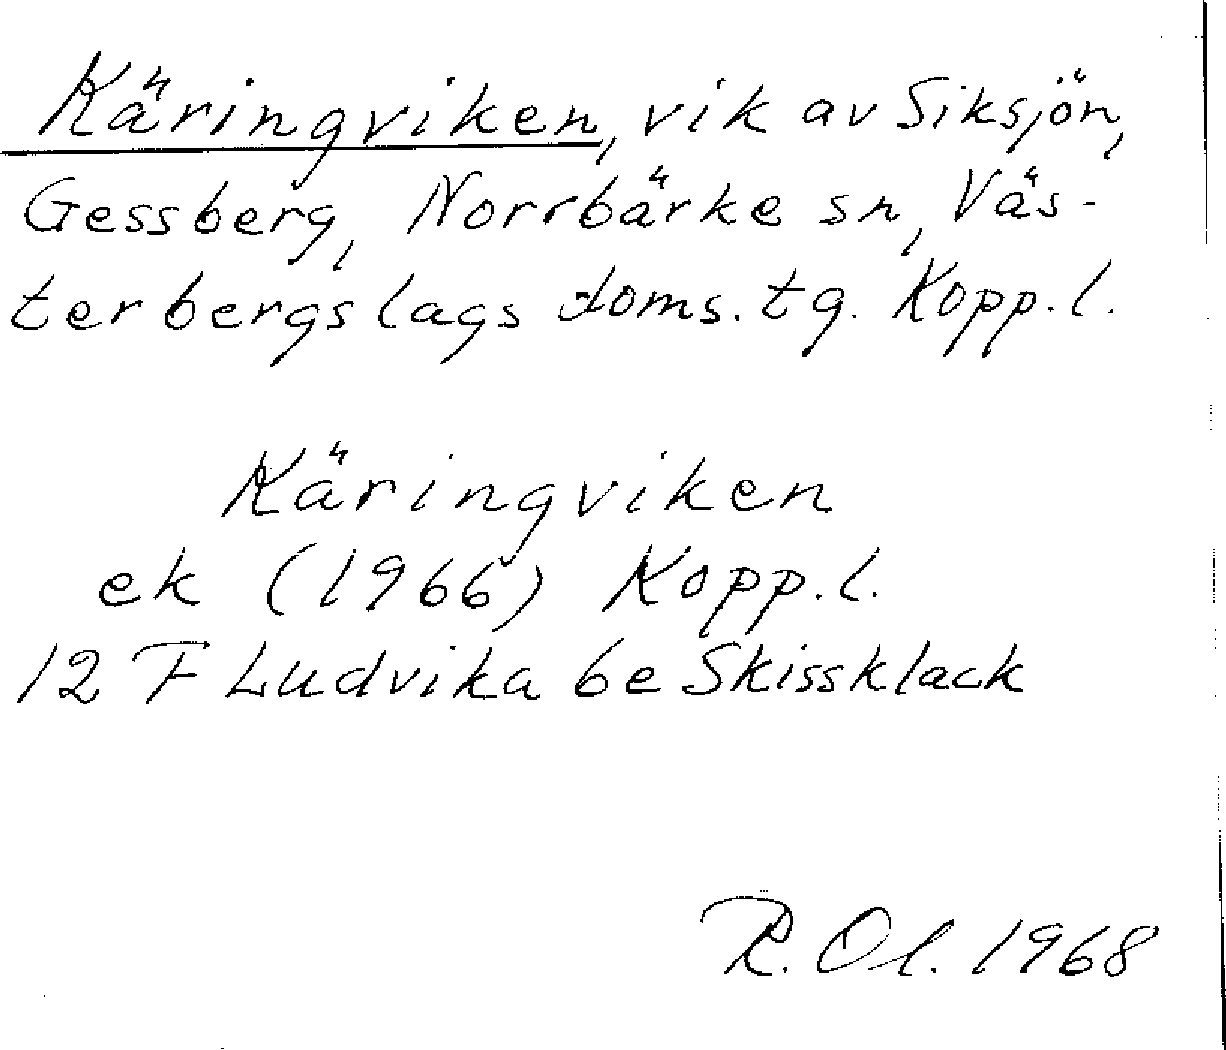 Käringviken, vik av Siksjön,
Gessberg, Norrbärke sn, Väs-
terbergslags doms. tg. Kopp. l.
Käringviken
ek (1966) Kopp. l.
12 F Ludvika 6e Skissklack
R. Ol. 1968